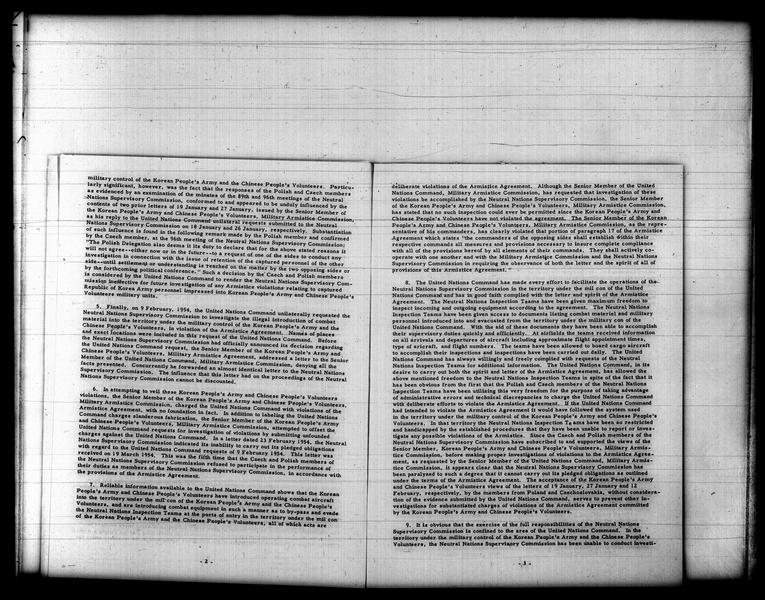 military control of the Korean People's Army and the Chinese People's Volunteers. Particu-
larly significant, however, was the fact that the responses of the Polish and Czech members
as evidenced by an examination of the minutes of the 89th and 96th meetings of the Neutral
Nations Supervisory Commission, conformed to and appeared to be unduly influenced by the
contents of two prior letters of 19 January and 27 January, issued by the Senior Member of
the Korean People's Army and Chinese People's Volunteers, Military Armistice Commission,
as his reply to the United Nations Command unilateral requests submitted to the Neutral
Nations Supervisory Commission on 18 January and 26 January, respectively. Substantiation
of such influence is found in the following remark made by the Polish member and confirmed
by the Czech member, at the 96th meeting of the Neutral Nations Supervisory Commission:
"The Polish Delegation also deems it its duty to declare that for the above stated reasons it
will not agree--either now or in the future--to a request of one of the sides to conduct any
investigation in connection with the issue of retention of the captured personnel of the other
side--until settlement or understanding is reached on the matter by the two opposing sides or
by the forthcoming political conference." Such a decision by the Czech and Polish members
is considered by the United Nations Command to render the Neutral Nations Supervisory Com-
mission ineffective for future investigation of any Armistice violations relating to captured
Republic of Korea Army personnel impressed into Korean People's Army and Chinese People's
Volunteers military units.
5. Finally, on 9 February, 1954, the United Nations Command unilaterally requested the
Neutral Nations Supervisory Commission to investigate the illegal introduction of combat
material into the territory under the military control of the Korean People's Army and the
Chinese People's Volunteers, in violation of the Armistice Agreement. Names of places
and exact locations were included in this request of the United Nations Command. Before
the Neutral Nations Supervisory Commission had officially announced its decision regarding
the United Nations Command request, the Senior Member of the Korean People's Army and
Chinese People's Volunteers, Military Armistice Agreement, addressed a letter to the Senior
Member of the United Nations Command, Military Armistice Commission, denying all the
facts presented. Concurrently he forwarded an almost identical letter to the Neutral Nations
Supervisory Commission. The influence that this letter had on the proceedings of the Neutral
Nations Supervisory Commission cannot be discounted.
6. In attempting to veil these Korean People's Army and Chinese People's Volunteers
violations, the Senior Member of the Korean People's Army and Chinese People's Volunteers,
Military Armistice Commission, charged the United Nations Command with violations of the
Armistice Agreement, with no foundation in fact. In addition to labeling the United Nations
Command charges slanderous fabrication, the Senior Member of the Korean People's Army
and Chinese People's Volunteers, Military Armistice Commission, attempted to offset the
United Nations Command requests for investigation of violations by submitting unfounded
charges against the United Nations Command. In a letter dated 23 February 1954, the Neutral
Nations Supervisory Commission indicated its inability to carry out its pledged obligations
with regard to the United Nations Command requests of 9 February 1954. This letter was
received on 19 March 1954. This was the fifth time that the Czech and Polish members of
the Neutral Nations Supervisory Commission refused to participate in the performance of
their duties as members of the Neutral Nations Supervisory Commission, in accordance with
the provisions of the Armistice Agreement.
7. Reliable information available to the United Nations Command shows that the Korean
People's Army and Chinese People's Volunteers have introduced operating combat aircraft
into the territory under the mil con of the Korean People's Army and the Chinese People's
Volunteers, and are introducing combat equipment in such a manner as to by-pass and evade
the Neutral Nations Inspection Teams at the ports of entry in the territory under the mil con
of the Korean People's Army and the Chinese People's Volunteers, all of which acts are
- 2 -
deliberate violations of the Armistice Agreement. Although the Senior Member of the United
Nations Command, Military Armistice Commission, has requested that investigation of these
violations be accomplished by the Neutral Nations Supervisory Commission, the Senior Member
of the Korean People's Army and Chinese People's Volunteers, Military Armistice Commission,
has stated that no such inspection could ever be permitted since the Korean People's Army and
Chinese People's Volunteers have not violated the agreement. The Senior Member of the Korean
People's Army and Chinese People's Volunteers, Military Armistice Commission, as the repre-
sentative of his commanders, has clearly violated that portion of paragraph 17 of the Armistice
Agreement which states, "the commanders of the opposing sides shall establish within their
respective commands all measures and provisions necessary to insure complete compliance
with all of the provisions hereof by all elements of their commands. They shall actively co-
operate with one another and with the Military Armistice Commission and the Neutral Nations
Supervisory Commission in requiring the observance of both the letter and the spirit of all of
provisions of this Armistice Agreement."
8. The United Nations Command has made every effort to facilitate the operations of the
Neutral Nations Supervisory Commission in the territory under the mil con of the United
Nations Command and has in good faith complied with the letter and spirit of the Armistice
Agreement. The Neutral Nations Inspection Teams have been given maximum freedom to
inspect incoming and outgoing equipment according to the agreement. The Neutral Nations
Inspection Teams have been given access to documents listing combat material and military
personnel introduced into and evacuated from the territory under the military con of the
United Nations Command. With the aid of these documents they have been able to accomplish
their supervisory duties quickly and efficiently. At airfields the teams received information
on all arrivals and departures of aircraft including approximate flight appointment times,
type of aircraft, and flight numbers. The teams have been allowed to board cargo aircraft
to accomplish their inspections and inspections have been carried out daily. The United
Nations Command has always willingly and freely complied with requests of the Neutral
Nations Inspection Teams for additional information. The United Nations Command, in its
desire to carry out both the spirit and letter of the Armistice Agreement, has allowed the
above mentioned freedom to the Neutral Nations Inspection Teams in spite of the fact that it
has been obvious from the first that the Polish and Czech members of the Neutral Nations
Inspection Teams have been utilizing this very freedom for the purpose of taking advantage
of administrative errors and technical discrepancies to charge the United Nations Command
with deliberate efforts to violate the Armistice Agreement. If the United Nations Command
had intended to violate the Armistice Agreement it would have followed the system used
in the territory under the military control of the Korean People's Army and Chinese People's
Volunteers. In that territory the Neutral Nations Inspection Teams have been so restricted
and handicapped by the established procedures that they have been unable to report or inves-
tigate any possible violations of the Armistice. Since the Czech and Polish members of the
Neutral Nations Supervisory Commission have subscribed to and supported the views of the
Senior Member, Korean People's Army and Chinese People's Volunteers, Military Armis-
tice Commission, before making proper investigations of violations to the Armistice Agree-
ment, as requested by the Senior Member of the United Nations Command, Military Armis-
tice Commission, it appears clear that the Neutral Nations Supervisory Commission has
been paralyzed to such a degree that it cannot carry out its pledged obligations as outlined
under the terms of the Armistice Agreement. The acceptance of the Korean People's Army
and Chinese People's Volunteers views of the letters of 19 January, 27 January and 12
February, respectively, by the members from Poland and Czechoslovakia, without considera-
tion of the evidence submitted by the United Nations Command, serves to prevent other in-
vestigations for substantiated charges of violations of the Armistice Agreement committed
by the Korean People's Army and Chinese People's Volunteers.
9. It is obvious that the exercise of the full responsibilities of the Neutral Nations
Supervisory Commission is confined to the area of the United Nations Command. In the
territory under the military control of the Korean People's Army and the Chinese People's
Volunteers, the Neutral Nations Supervisory Commission has been unable to conduct investi-
- 3 -